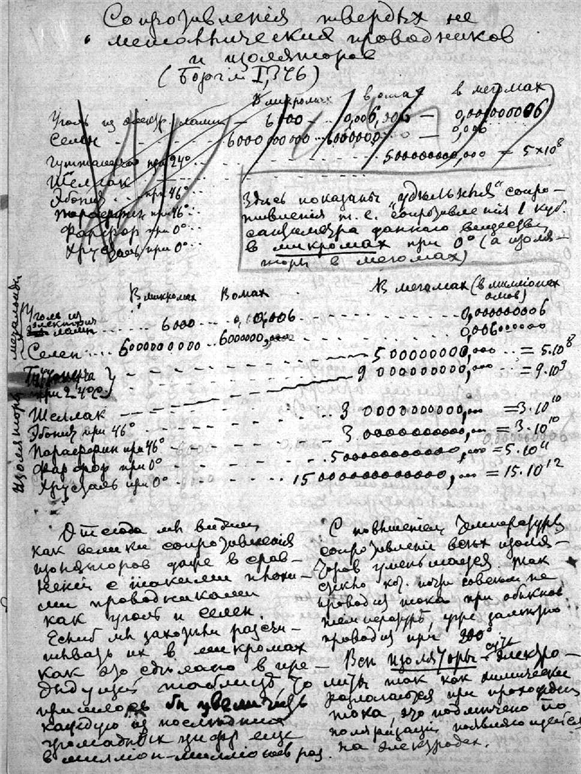 Сопротивленiя твердых не
металлических проводников
и изоляторов
В микромах в омах в мегомах
Уголь из электр. лампы — 6000 — 0,006,000 — 0,000000006
Селен 6000000000 6000000 0,006
Гуттаперча при 24° 500000000,000 = 5×10⁸
Шеллак
Эбонит при 46°
парафин при 46°
Фарфор при 0°
Хрусталь при 0°
Здесь показаны "удельныя" сопро-
тивленiя т. е. сопротивленiя 1 куб.
сантиметра даннаго вещества
в микромах при 0° (а изоля-
торы в мегомах)
металлоиды
В микромах В омах В мегомах (в миллионах
омов)
Уголь из
электрич.
лампы 6000 0,006 0,000000006
Селен 6000000000 6000,000 0,006000000
Изоляторы
Гуттаперча
при 24°C 500000000,000 = 5.10⁸
9000000000,000 = 9.10⁹
Шеллак
Эбонит при 46° 30000000000,000 = 3.10¹⁰
Парафин при 46° 30000000000,000 = 3.10¹⁰
Фарфор при 0° 500000000000,000 = 5.10¹¹
Хрусталь при 0° 15000000000000,000 = 15.10¹²
Отсюда мы видим
как велики сопротивленiя
изоляторов даже в срав-
ненiи с такими плохи-
ми проводниками
как уголь и селен.
Если б мы захотели рассчи-
тывать их в микромах
как это сделано в пре-
дыдущей таблице, то
пришлось бы увеличить
каждую из последних
громадных цифр еще
в миллион-миллионов раз.
С повышенiем температуры
сопротивленiе всех изоля-
торов уменьшается так
стекло кот. почти совсем не
проводит тока при обыкнов.
температуре, уже заметно
проводит при 200°
Все изоляторы суть электро-
литы так как химически
разлагаются при прохожденiи
тока, это подмечено по
поляризацiи, появляющейся
на электродах.